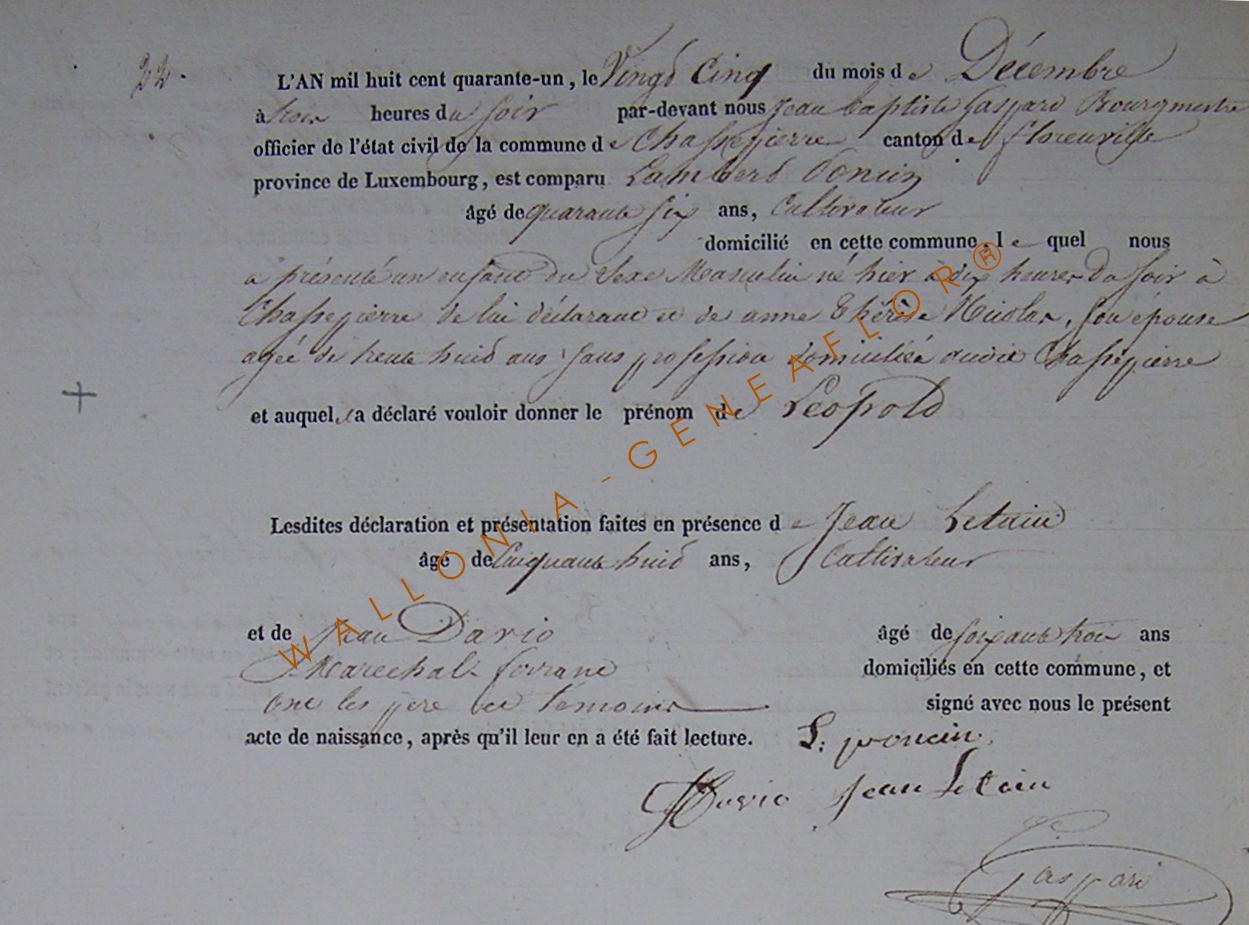 22.
L'AN mil huit cent quarante-un, le Vingd Cinq du mois de Décembre
à trois heures du soir par-devant nous Jean Baptiste Gaspard Bourgmestre
officier de l'état civil de la commune de Chassepierre canton de florenville
province de Luxembourg, est comparu Lambert Poncin
âgé de quarante six ans, Cultivateur
domicilié en cette commune, le quel nous
a présenté un enfant du Sexe Masculin né hier à dix heures du soir à
Chassepierre de lui déclarant et de anne Thérèse Nicolas, son épouse
agée de trente huid ans sans profession domiciliée audit Chassepierre
et auquel il a déclaré vouloir donner le prénom de Léopold
Lesdites déclaration et présentation faites en présence de Jean Letain
âgé de Cinquante huid ans, Cultivateur
et de Jean Davio âgé de soixante trois ans
Marechal-ferrant domiciliés en cette commune, et
ont les père et témoins signé avec nous le présent
acte de naissance, après qu'il leur en a été fait lecture. L: poncin.
Davio Jean Letain
Gaspard
WALLONIA-GENEAFLOR®